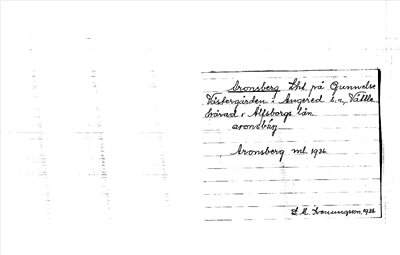 Aronsberg Lht på Gunnelse
Västergården i Angered s:n, Vättle
härad, Älfsborgs län
aronsbärj
Aronsberg ml. 1936.
1936